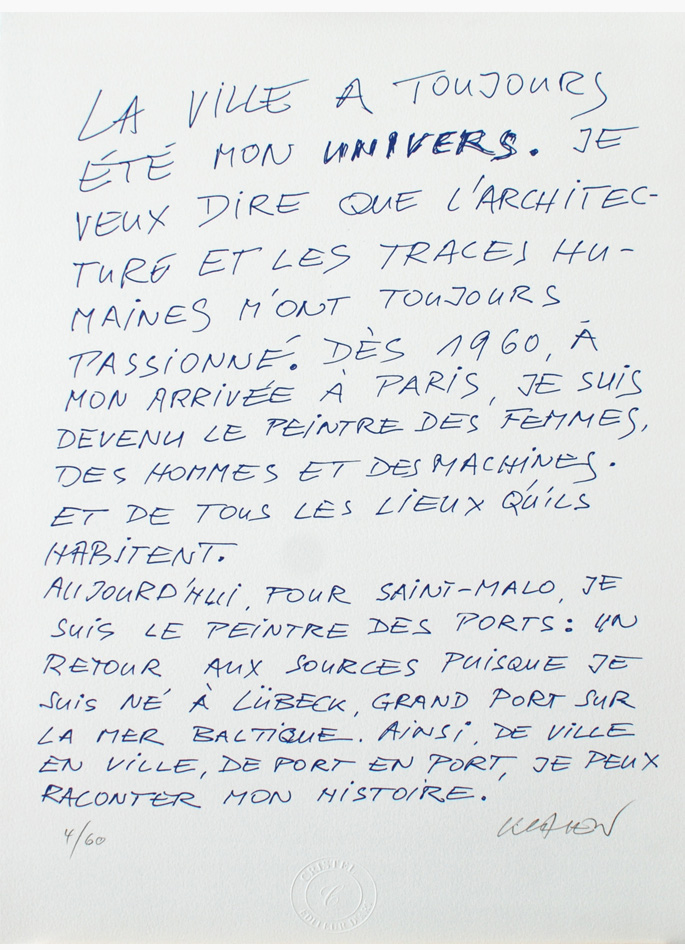 LA VILLE A TOUJOURS
ÉTÉ MON UNIVERS. JE
VEUX DIRE QUE L'ARCHITEC-
TURE ET LES TRACES HU-
MAINES M'ONT TOUJOURS
PASSIONNÉ. DÈS 1960, À
MON ARRIVÉE À PARIS, JE SUIS
DEVENU LE PEINTRE DES FEMMES,
DES HOMMES ET DES MACHINES.
ET DE TOUS LES LIEUX QU'ILS
HABITENT.
AUJOURD'HUI, POUR SAINT-MALO, JE
SUIS LE PEINTRE DES PORTS: UN
RETOUR AUX SOURCES PUISQUE JE
SUIS NÉ À LÜBECK, GRAND PORT SUR
LA MER BALTIQUE. AINSI, DE VILLE
EN VILLE, DE PORT EN PORT, JE PEUX
RACONTER MON HISTOIRE.
4/60
CRISTEL
ÉDITEUR D'ART